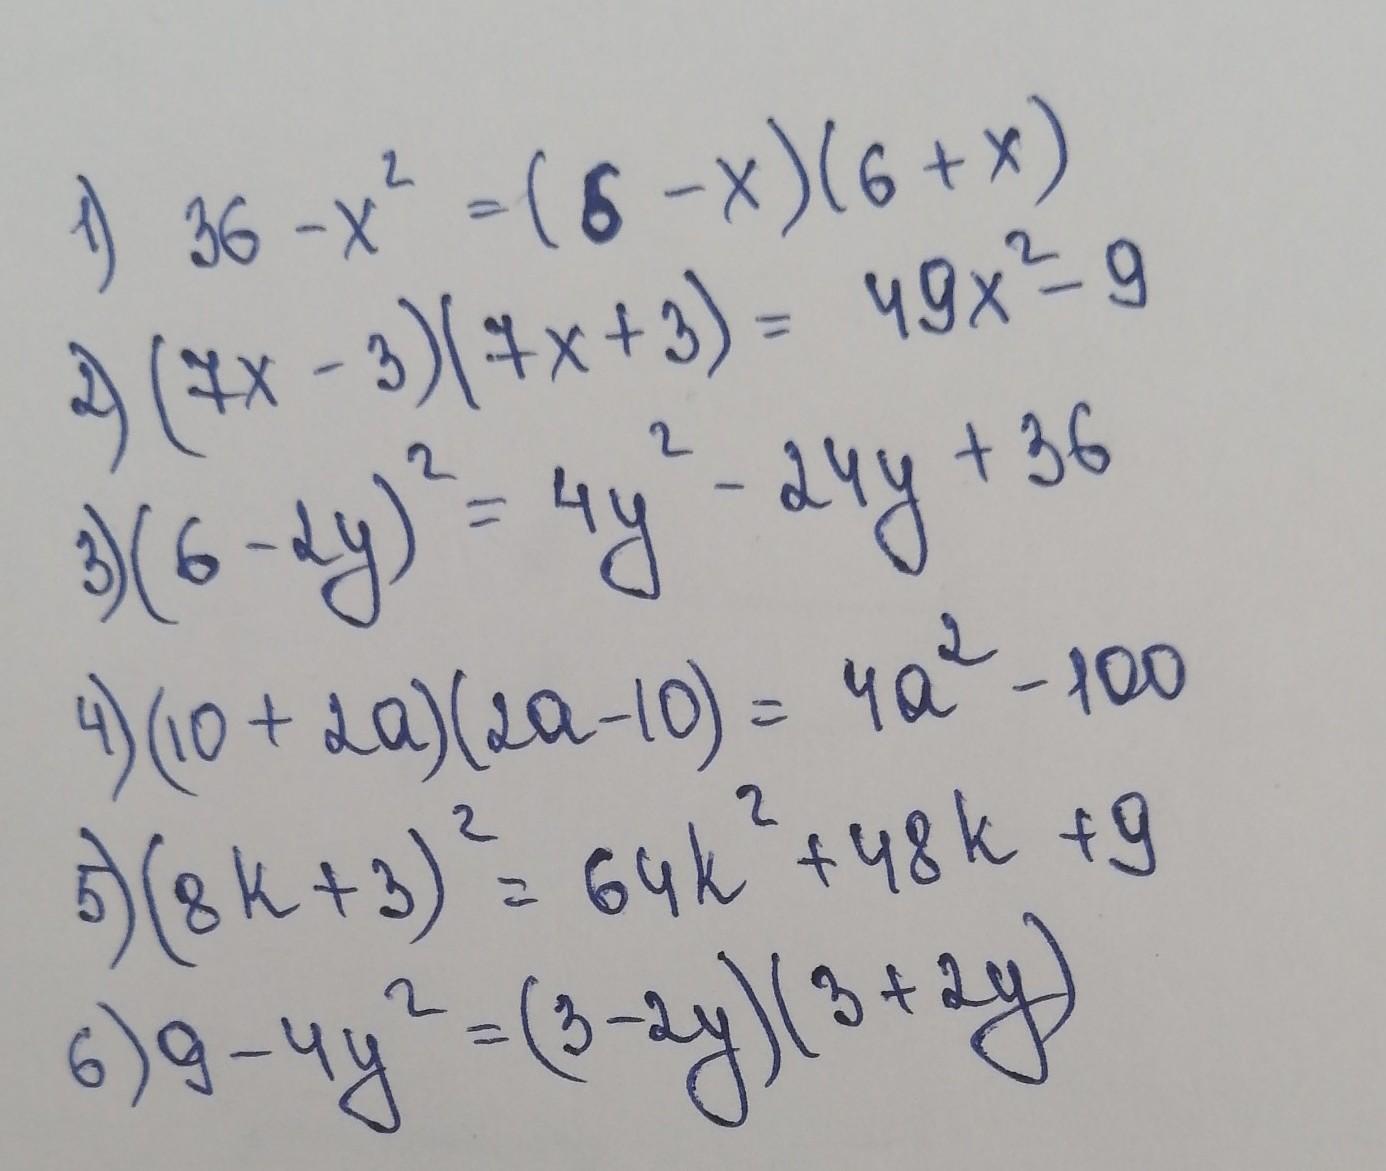 1) 36 - x² = (6 - x)(6 + x)
2) (7x - 3)(7x + 3) = 49x² - 9
3) (6 - 2y)² = 4y² - 24y + 36
4) (10 + 2a)(2a - 10) = 4a² - 100
5) (8k + 3)² = 64k² + 48k + 9
6) 9 - 4y² = (3 - 2y)(3 + 2y)